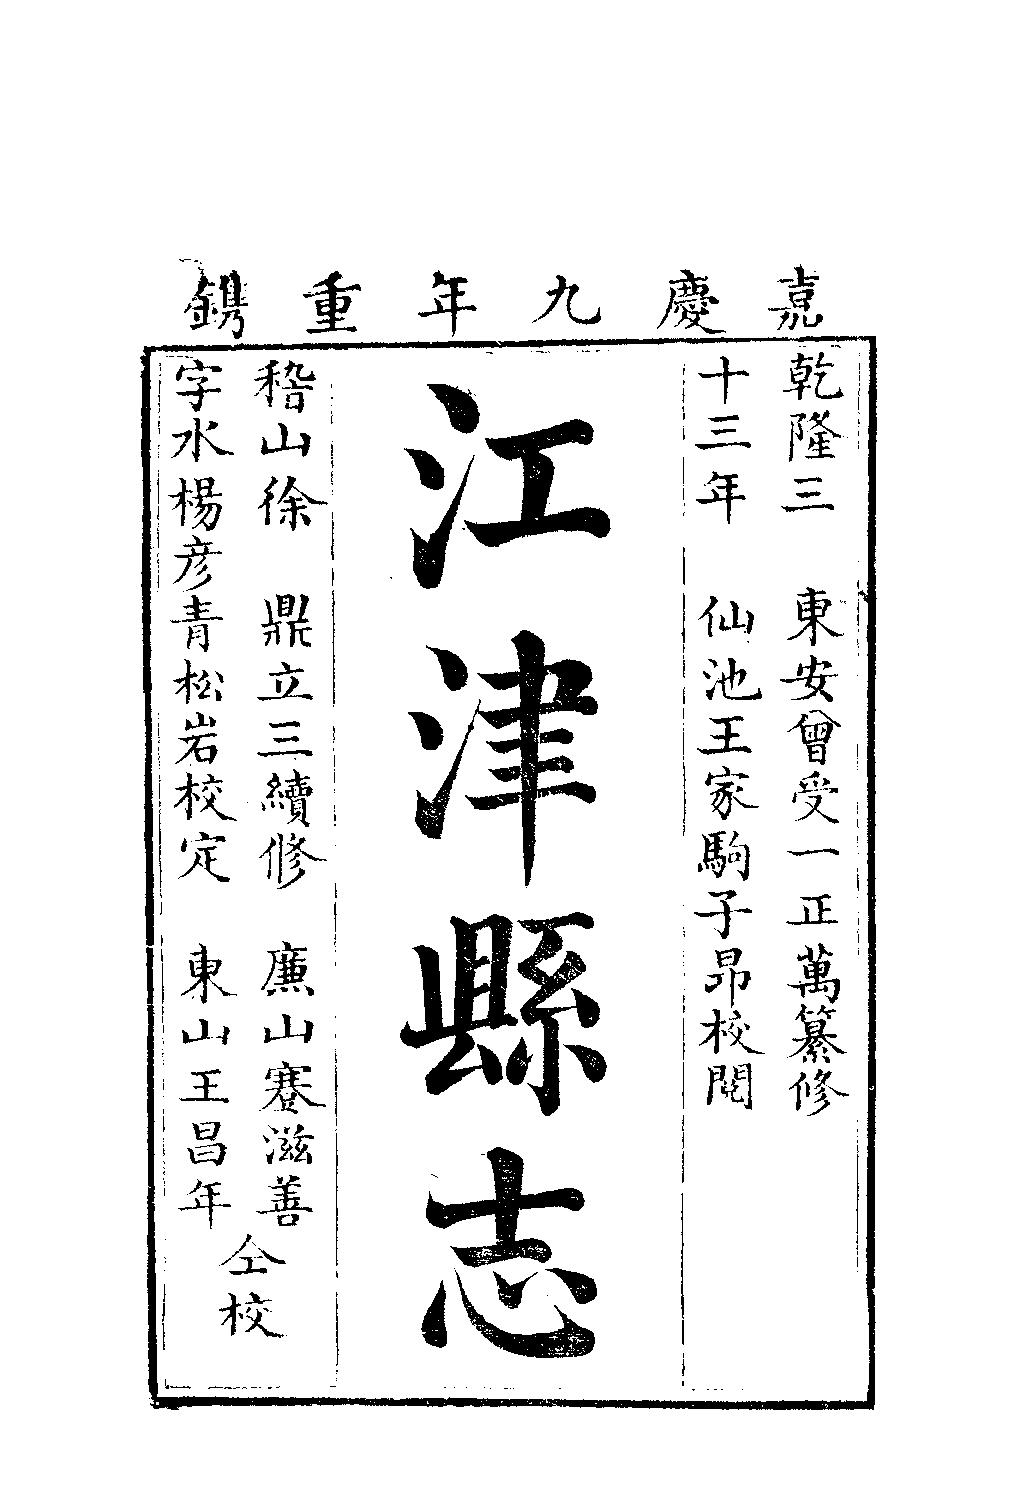 嘉慶九年重鐫
乾隆三
十三年
東安曾受一正萬纂修
仙池王家駒子昂校閱
江津縣志
嵇山徐 鼎立三續修
字水楊彦青松岩校定
廉山蹇滋善
東山王昌年
仝校